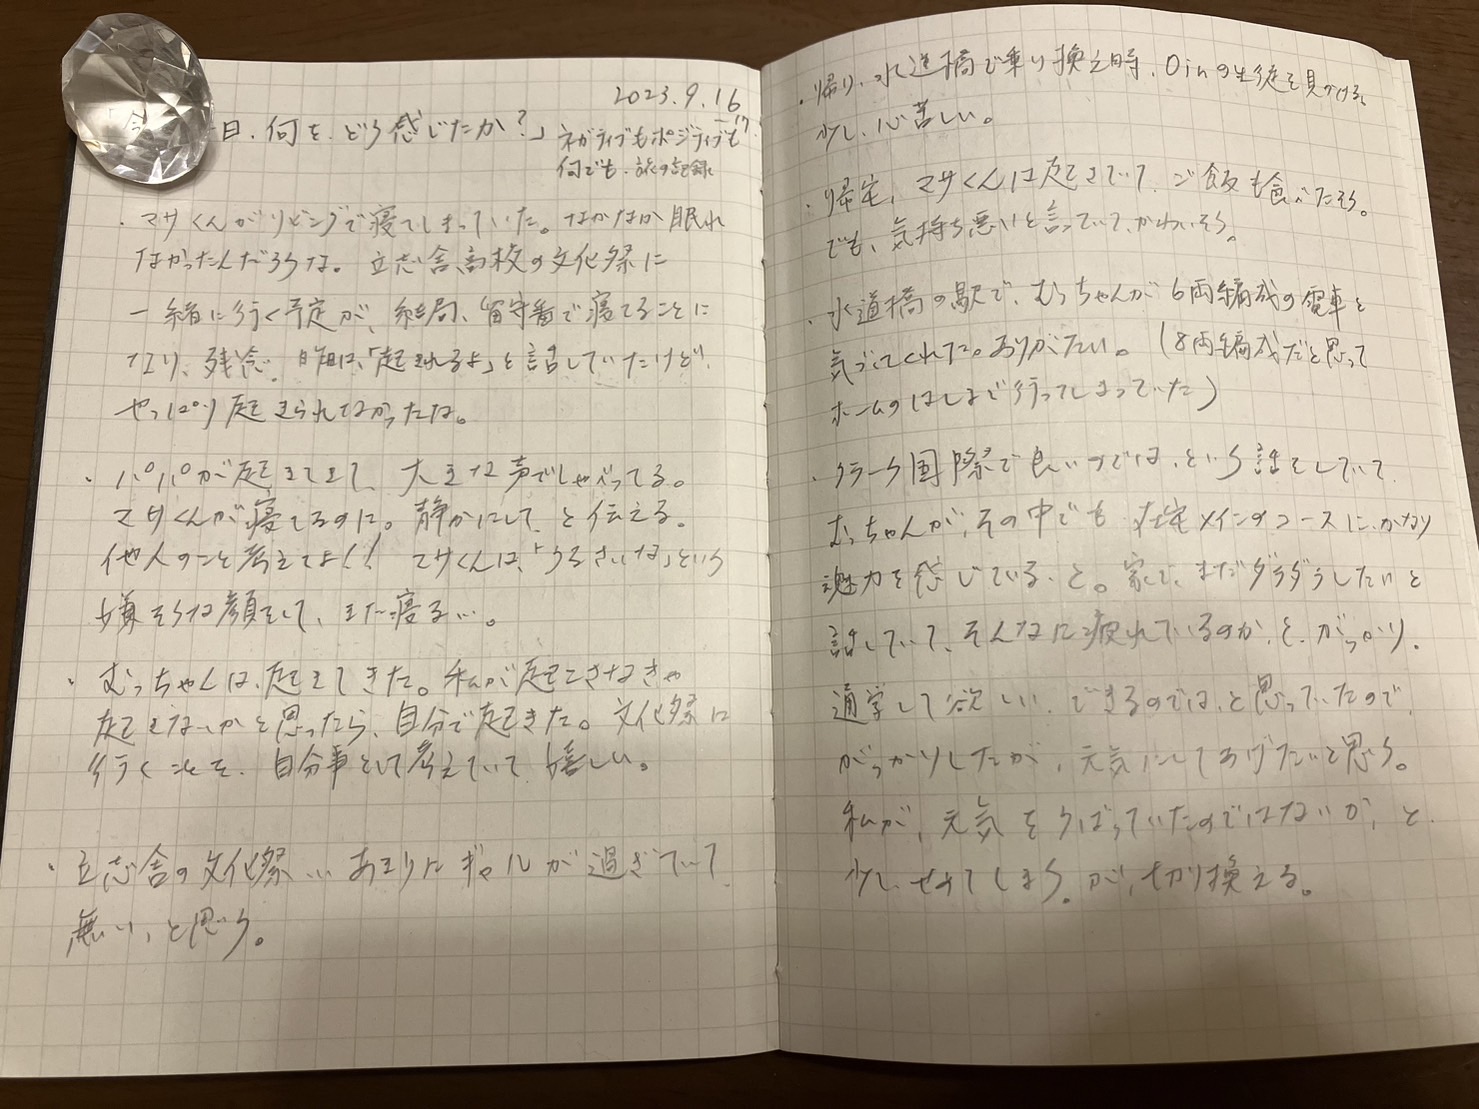 2023.9.16
-17.
今日、何を、どう感じたか?」
ネガティブもポジティブも
何でも、旅の記録
・マサくんがリビングで寝てしまっていた。なかなか眠れ
なかったんだろうな。立志舎高校の文化祭に
一緒に行く予定が、結局、留守番で寝てることに
なり、残念。昨日は、「起きれるよ」と話していたけど、
やっぱり起きられてなかったな。
・パパが起きてきて、大きな声でしゃべってる。
マサくんが寝てるのに。静かにして、と伝える。
他人のこと考えてよ!! マサくんは、「うるさいな」という
嫌そうな顔をして、また寝る…。
・むっちゃんは、起きてきた。私が起こさなきゃ
起きないかと思ったら、自分で起きた。文化祭に
行くことを、自分事として考えていて、嬉しい。
・立志舎の文化祭…あまりにギャルが過ぎていて、
無い、と思う。
・帰り、水道橋で乗り換え時、Oinの生徒を見かける。
少し、心苦しい。
・帰宅、マサくんは起きていて、ご飯も食べたそう。
でも、気持ち悪いと言っていて、かわいそう。
・水道橋の駅で、むっちゃんが6両編成の電車と
気づいてくれた。ありがたい。(8両編成だと思って
ホームのはしまで行ってしまっていた)
・クラーク国際で良いのでは、という話をしていて、
むっちゃんが、その中でも在宅メインのコースに、かなり
魅力を感じている、と。家で、まだダラダラしたいと
話していて、そんなに疲れているのか、と、がっかり。
通学して欲しい、できるのでは、と思っていたので、
がっかりしたが、元気にしてあげたいと思う。
私が、元気をうばっていたのではないか、と、
少し、せめてしまう。が、切り換える。